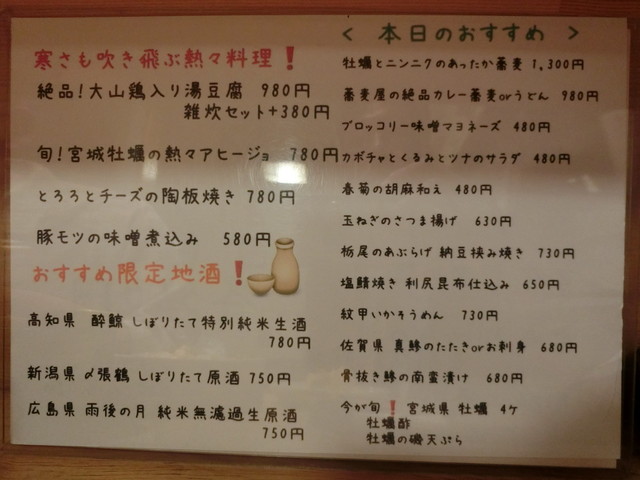 寒さも吹き飛ぶ熱々料理！
絶品！大山鶏入り湯豆腐 980円
雑炊セット+380円
旬！宮城牡蠣の熱々アヒージョ 780円
とろろとチーズの陶板焼き 780円
豚モツの味噌煮込み 580円
おすすめ限定地酒！
高知県 酔鯨 しぼりたて特別純米生酒
780円
新潟県 〆張鶴 しぼりたて原酒 750円
広島県 雨後の月 純米無濾過生原酒
750円
< 本日のおすすめ >
牡蠣とニンニクのあったか蕎麦 1,300円
蕎麦屋の絶品カレー蕎麦orうどん 980円
ブロッコリー味噌マヨネーズ 480円
カボチャとくるみとツナのサラダ 480円
春菊の胡麻和え 480円
玉ねぎのさつま揚げ 630円
栃尾のあぶらげ 納豆挟み焼き 730円
塩鯖焼き 利尻昆布仕込み 650円
紋甲いかそうめん 730円
佐賀県 真鯵のたたきorお刺身 680円
骨抜き鯵の南蛮漬け 680円
今が旬！ 宮城県 牡蠣 4ケ
牡蠣酢
牡蠣の磯天ぷら